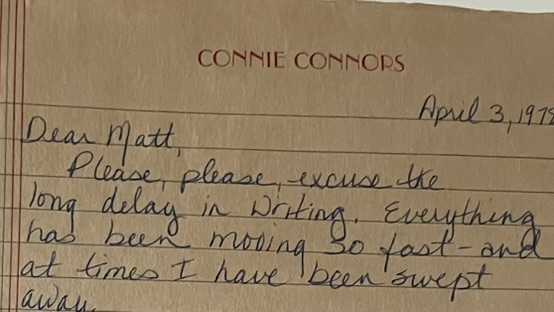 CONNIE CONNORS
April 3, 1978
Dear Matt,
Please, please, excuse the
long delay in writing. Everything
has been moving so fast - and
at times I have been swept
away